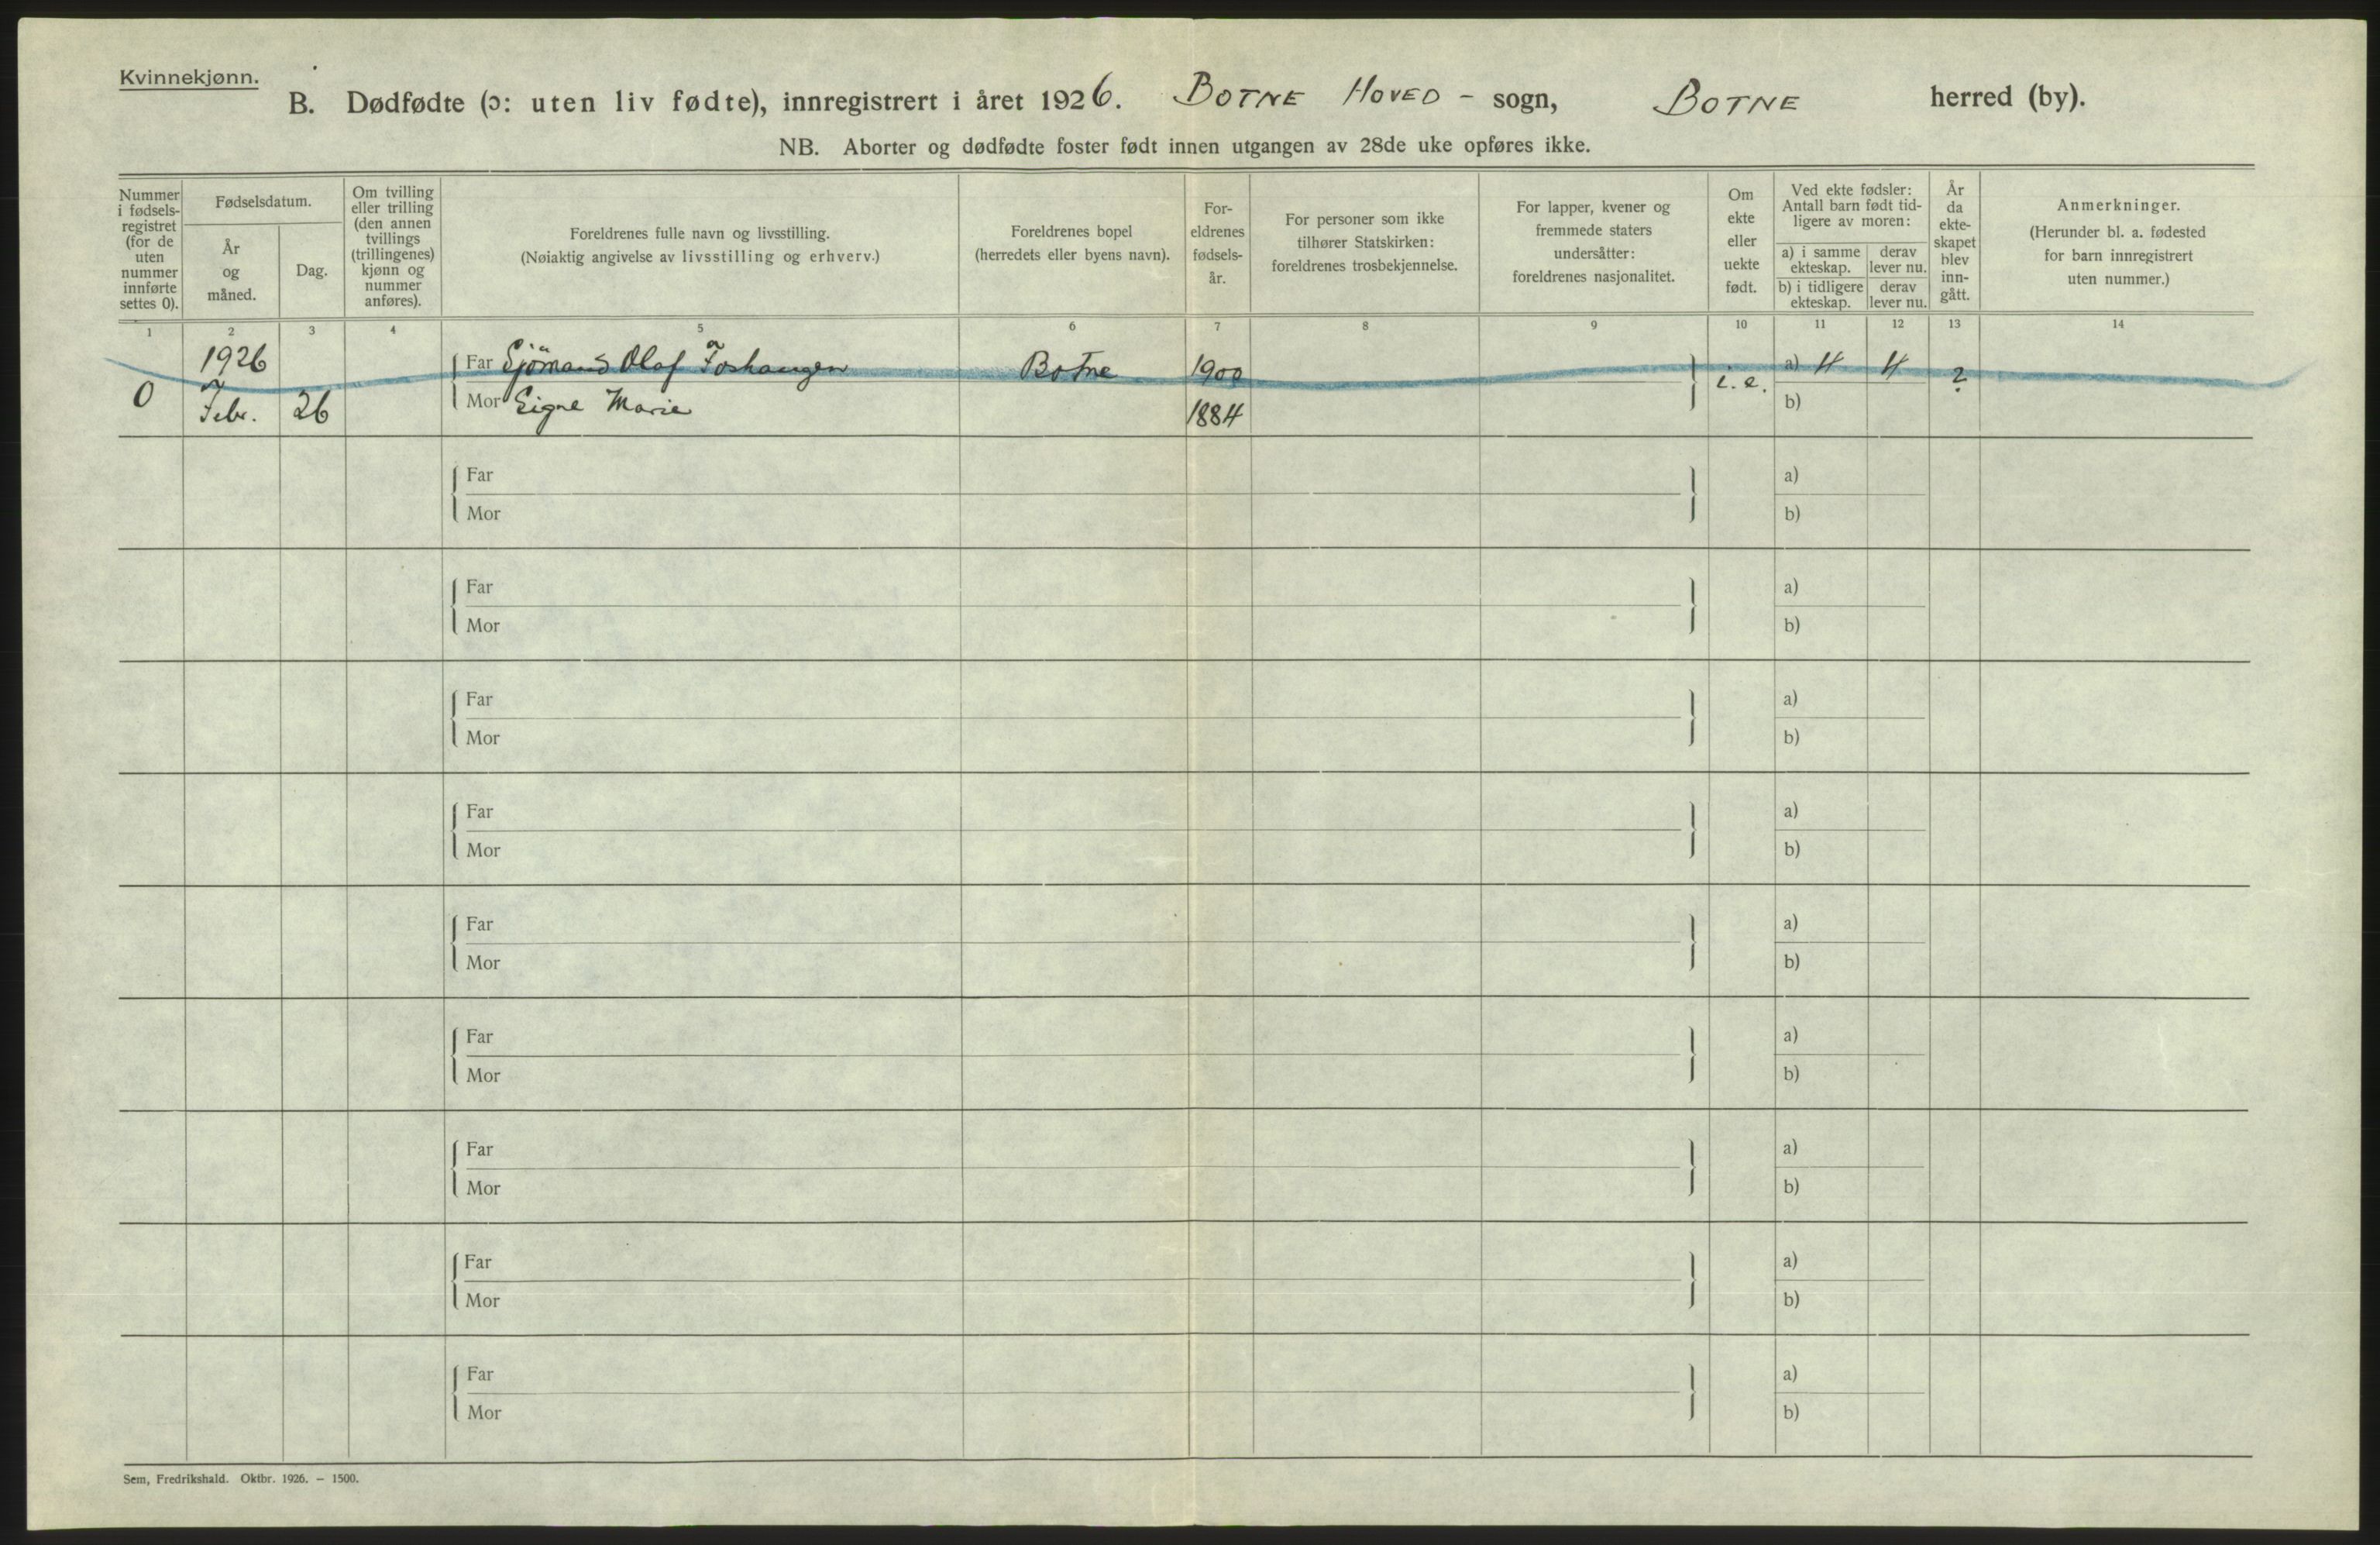 Kvinnekjønn.
B. Dødfødte (ɔ: uten liv fødte), innregistrert i året 1926. BOTNE HOVED - sogn, BOTNE herred (by).
NB. Aborter og dødfødte foster født innen utgangen av 28de uke opføres ikke.
Nummer
i fødsels-
registret
(for de
uten
nummer
innførte
settes 0).
Fødselsdatum.
År
og
måned.
Dag.
Om tvilling
eller trilling
(den annen
tvillings
(trillingenes)
kjønn og
nummer
anføres).
Foreldrenes fulle navn og livsstilling.
(Nøiaktig angivelse av livsstilling og erhverv.)
Foreldrenes bopel
(herredets eller byens navn).
For-
eldrenes
fødsels-
år.
For personer som ikke
tilhører Statskirken:
foreldrenes trosbekjennelse.
For lapper, kvener og
fremmede staters
undersåtter:
foreldrenes nasjonalitet.
Om
ekte
eller
uekte
født.
Ved ekte fødsler:
Antall barn født tid-
ligere av moren:
a) i samme
ekteskap.
derav
lever nu.
b) i tidligere
ekteskap.
derav
lever nu.
År
da
ekte-
skapet
blev
inn-
gått.
Anmerkninger.
(Herunder bl. a. fødested
for barn innregistrert
uten nummer.)
1 2 3 4 5 6 7 8 9 10 11 12 13 14
0 1926 Febr. 26
Far Sjömand Olaf Foshaugen Botne 1900 i. e. a) 4 4 ?
Mor Signe Marie 1884 b)
Far a)
Mor b)
Far a)
Mor b)
Far a)
Mor b)
Far a)
Mor b)
Far a)
Mor b)
Far a)
Mor b)
Far a)
Mor b)
Far a)
Mor b)
Far a)
Mor b)
Sem, Fredrikshald. Oktbr. 1926. – 1500.